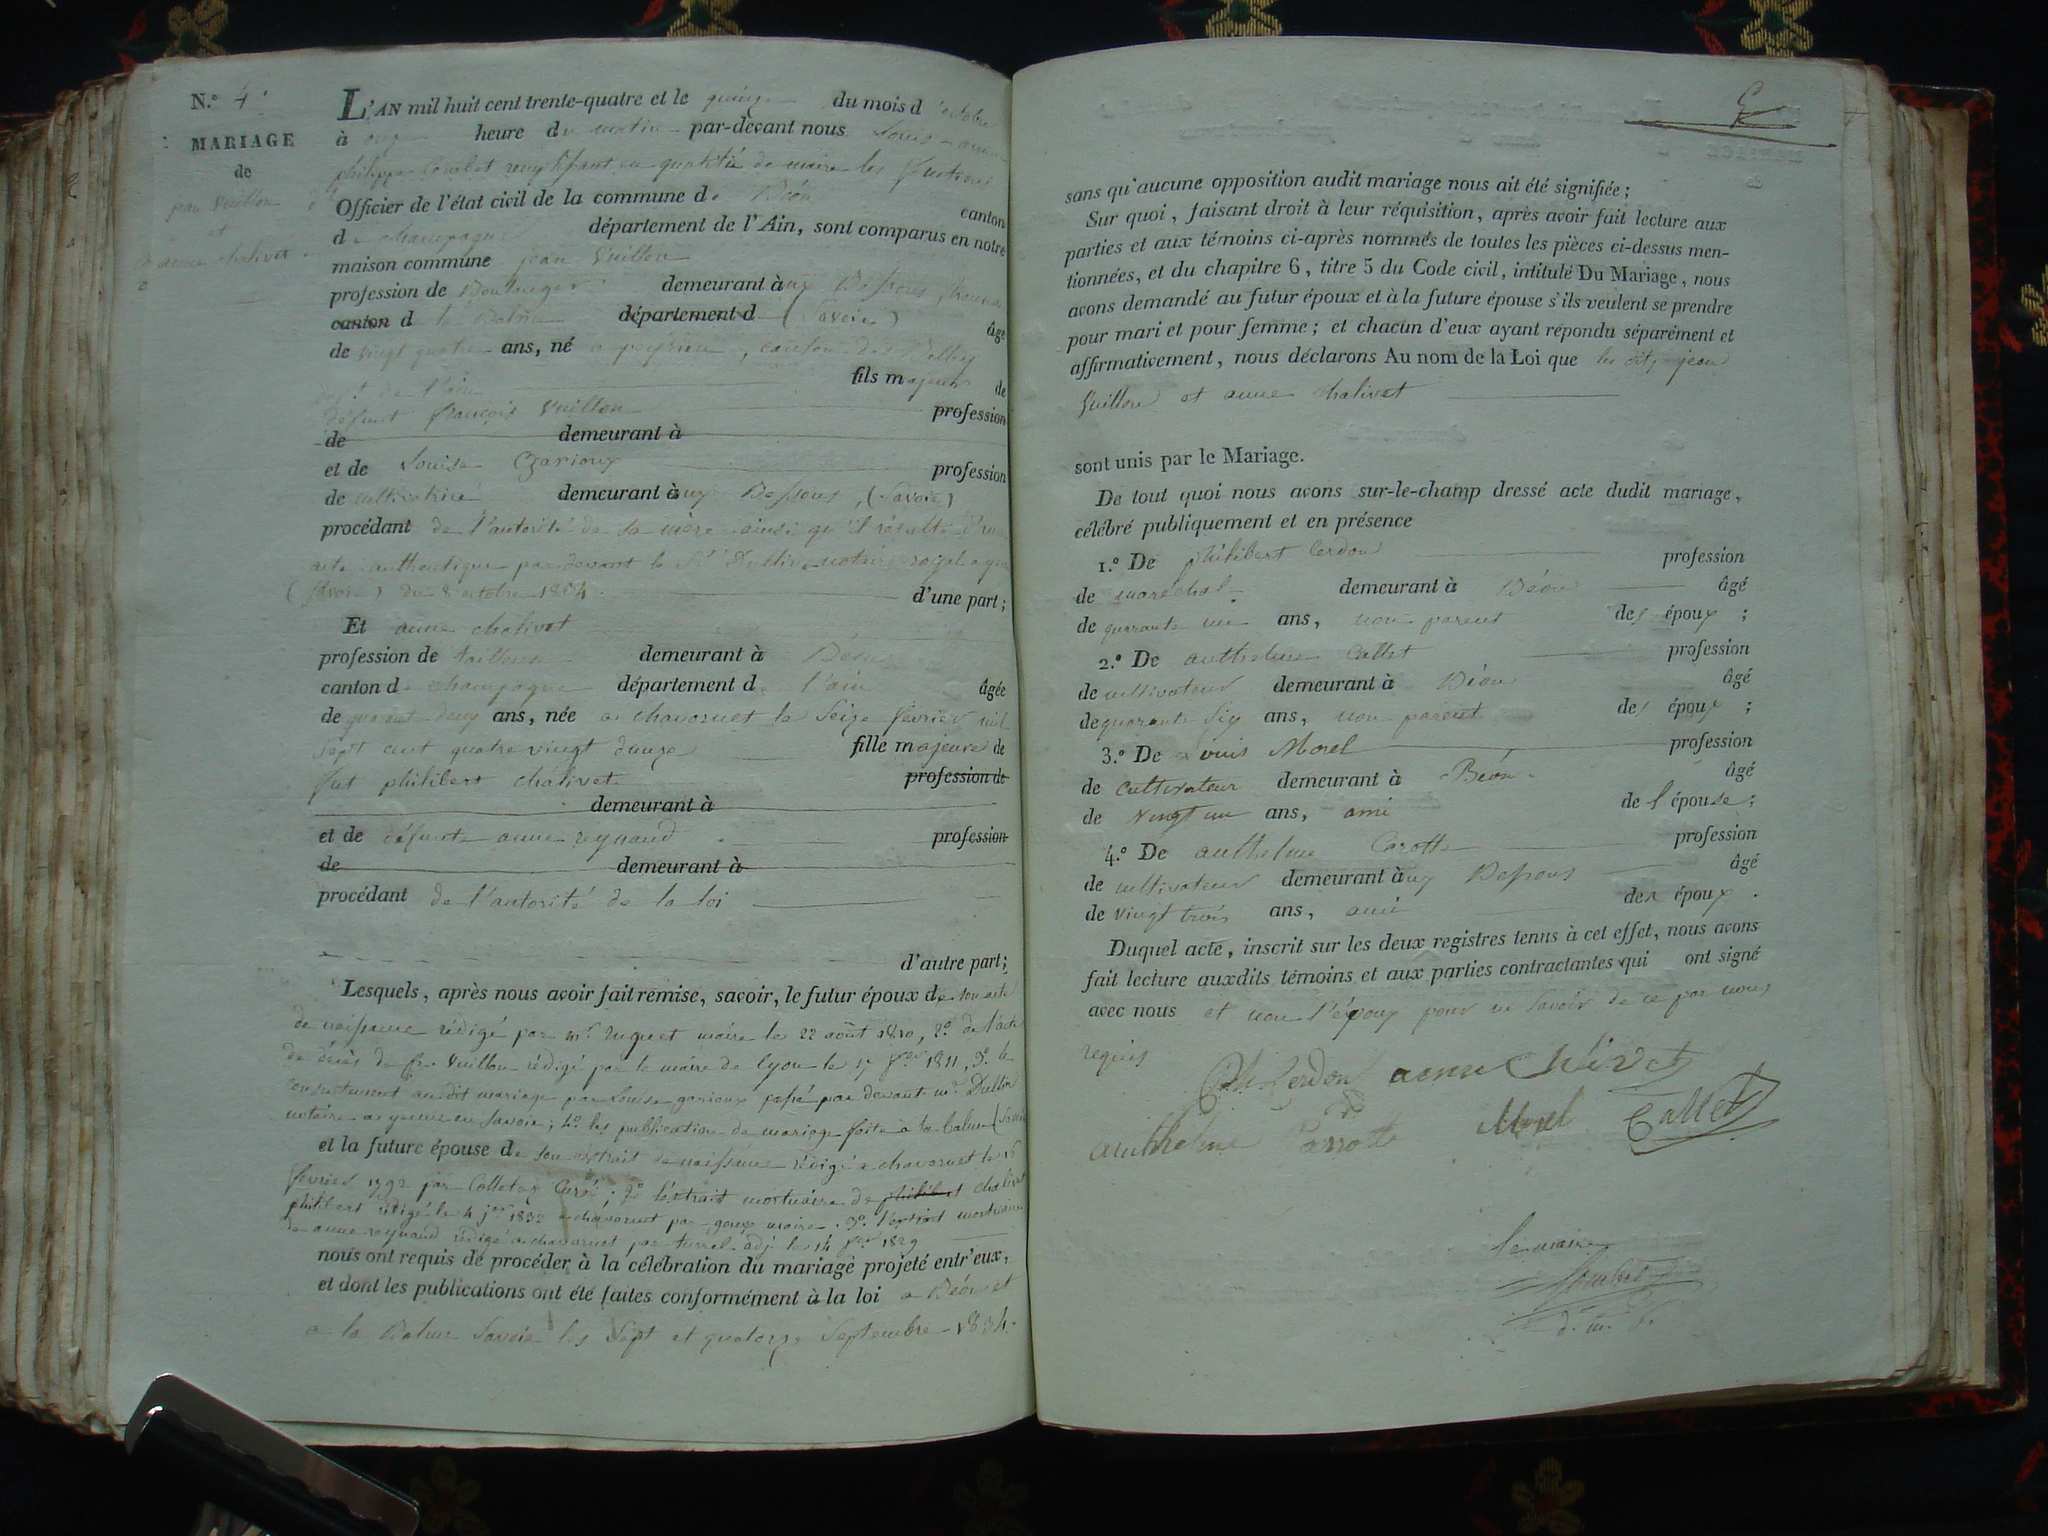 N.o 4
MARIAGE
de
jean Vuillon
et
anne chalivet
L'AN mil huit cent trente-quatre et le quinze du mois d'octobre
à onze heure du matin par-devant nous Louis
philippe remplissant en qualité de maire les fonctions
Officier de l'état civil de la commune de Béon canton
de champagne département de l'Ain, sont comparus en notre
maison commune jean Vuillon
profession de Boulanger demeurant aux Dessous,
canton de la Balme département d (Savoie) âgé
de vingt quatre ans, né a peyrieu, canton de Belley
dept de l'ain fils majeur de
défunt françois Vuillon profession
de demeurant à
et de Louise Garioux profession
de cultivatrice demeurant aux Dessous, (Savoie)
procédant de l'autorité de sa mère ainsi qu'il résulte d'un
acte authentique par devant le Sr Dullin notaire royal a
(Savoie) du 8 octobre 1834. d'une part;
Et anne chalivet
profession de tailleuse demeurant à Béon
canton de champagne département de l'ain âgée
de quarant deux ans, née a chavornet le Seize février mil
sept cent quatre vingt douze fille majeure de
fut philibert chalivet profession de
demeurant à
et de défunte anne reynaud profession
de demeurant à
procédant de l'autorité de la loi
d'autre part;
Lesquels, après nous avoir fait remise, savoir, le futur époux de son acte
de naissance rédigé par mr huguet maire le 22 août 1810, 2o de l'acte
de décès de fr. Vuillon rédigé par le maire de lyon le 17 1811, 3o le
consentement audit mariage par Louise garioux passé par devant mr Dullin
notaire a yenne en Savoie; 4o les publication de mariage faite a la balme (Savoie
et la future épouse de son extrait de naissance rédigé a chavornet le 16
février 1792 par Colletaz Curé; 2o l'extrait mortuaire de philibert chalivet
philibert rédigé le 4 jer 1832 a chavornet par goux maire. 3o. l'extrait mortuaire
de anne reynaud rédigé a chavornet par turrel adj. le 14 1829
nous ont requis de procéder à la célébration du mariage projeté entr'eux,
et dont les publications ont été faites conformément à la loi a Béon et
a la Balme Savoie les Sept et quatorze Septembre 1834.
sans qu'aucune opposition audit mariage nous ait été signifiée;
Sur quoi, faisant droit à leur réquisition, après avoir fait lecture aux
parties et aux témoins ci-après nommés de toutes les pièces ci-dessus men-
tionnées, et du chapitre 6, titre 5 du Code civil, intitulé Du Mariage, nous
avons demandé au futur époux et à la future épouse s'ils veulent se prendre
pour mari et pour femme; et chacun d'eux ayant répondu séparément et
affirmativement, nous déclarons Au nom de la Loi que les dits jean
Vuillon et anne chalivet
sont unis par le Mariage.
De tout quoi nous avons sur-le-champ dressé acte dudit mariage,
célébré publiquement et en présence
1.o De philibert Cerdon profession
de marechal demeurant à Béon âgé
de quarante un ans, non parent des époux;
2.o De anthelme Callet profession
de cultivateur demeurant à Béon âgé
de quarante Six ans, non parent des époux;
3.o De Louis Morel profession
de Cultivateur demeurant à Béon âgé
de vingt un ans, ami de l'épouse;
4.o De anthelme Carotte profession
de cultivateur demeurant aux Dessous âgé
de vingt trois ans, ami des époux.
Duquel acte, inscrit sur les deux registres tenus à cet effet, nous avons
fait lecture auxdits témoins et aux parties contractantes qui ont signé
avec nous et non l'époux pour ne savoir de ce par nous
requis
Ph Cerdon anne
anthelme Morel Callet
le maire